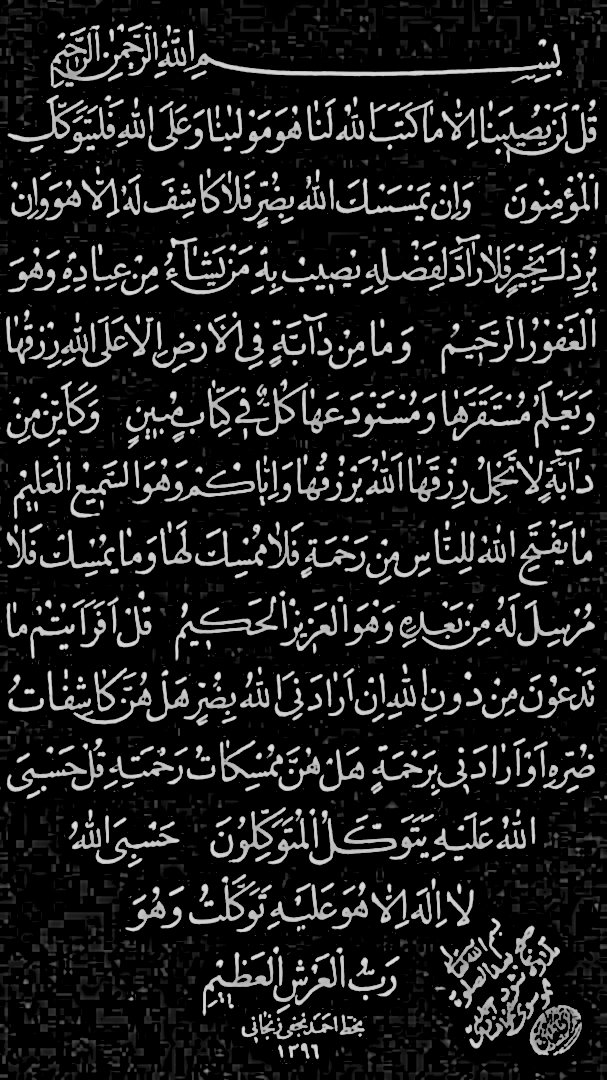 بِسْمِ اللّٰهِ الرَّحْمٰنِ الرَّحِيْمِ
قُلْ لَنْ يُصِيبَنٰا اِلّٰا مٰا كَتَبَ اللّٰهُ لَنٰا هُوَ مَوْلٰينٰا وَعَلَى اللّٰهِ فَلْيَتَوَكَّلِ
الْمُؤْمِنُونَ وَاِنْ يَمْسَسْكَ اللّٰهُ بِضُرٍّ فَلٰا كٰاشِفَ لَهُ اِلّٰا هُوَ وَاِنْ
يُرِدْكَ بِخَيْرٍ فَلٰا رٰادَّ لِفَضْلِهِ يُصِيبُ بِهِ مَنْ يَشٰاءُ مِنْ عِبٰادِهِ وَهُوَ
الْغَفُورُ الرَّحِيمُ وَمٰا مِنْ دٰابَّةٍ فِي الْاَرْضِ اِلّٰا عَلَى اللّٰهِ رِزْقُهٰا
وَيَعْلَمُ مُسْتَقَرَّهٰا وَمُسْتَوْدَعَهٰا كُلٌّ فِي كِتٰابٍ مُبِينٍ وَكَاَيِّنْ مِنْ
دٰابَّةٍ لٰا تَحْمِلُ رِزْقَهَا اللّٰهُ يَرْزُقُهٰا وَاِيّٰاكُمْ وَهُوَ السَّمِيعُ الْعَلِيمُ
مٰا يَفْتَحِ اللّٰهُ لِلنّٰاسِ مِنْ رَحْمَةٍ فَلٰا مُمْسِكَ لَهٰا وَمٰا يُمْسِكْ فَلٰا
مُرْسِلَ لَهُ مِنْ بَعْدِهِ وَهُوَ الْعَزِيزُ الْحَكِيمُ قُلْ اَفَرَاَيْتُمْ مٰا
تَدْعُونَ مِنْ دُونِ اللّٰهِ اِنْ اَرٰادَنِيَ اللّٰهُ بِضُرٍّ هَلْ هُنَّ كٰاشِفٰاتُ
ضُرِّهِ اَوْ اَرٰادَنِي بِرَحْمَةٍ هَلْ هُنَّ مُمْسِكٰاتُ رَحْمَتِهِ قُلْ حَسْبِيَ
اللّٰهُ عَلَيْهِ يَتَوَكَّلُ الْمُتَوَكِّلُونَ حَسْبِيَ اللّٰهُ
لٰا اِلٰهَ اِلّٰا هُوَ عَلَيْهِ تَوَكَّلْتُ وَهُوَ
رَبُّ الْعَرْشِ الْعَظِيْمِ
بخط احمد نجفی زنجانی
١٣٩٦